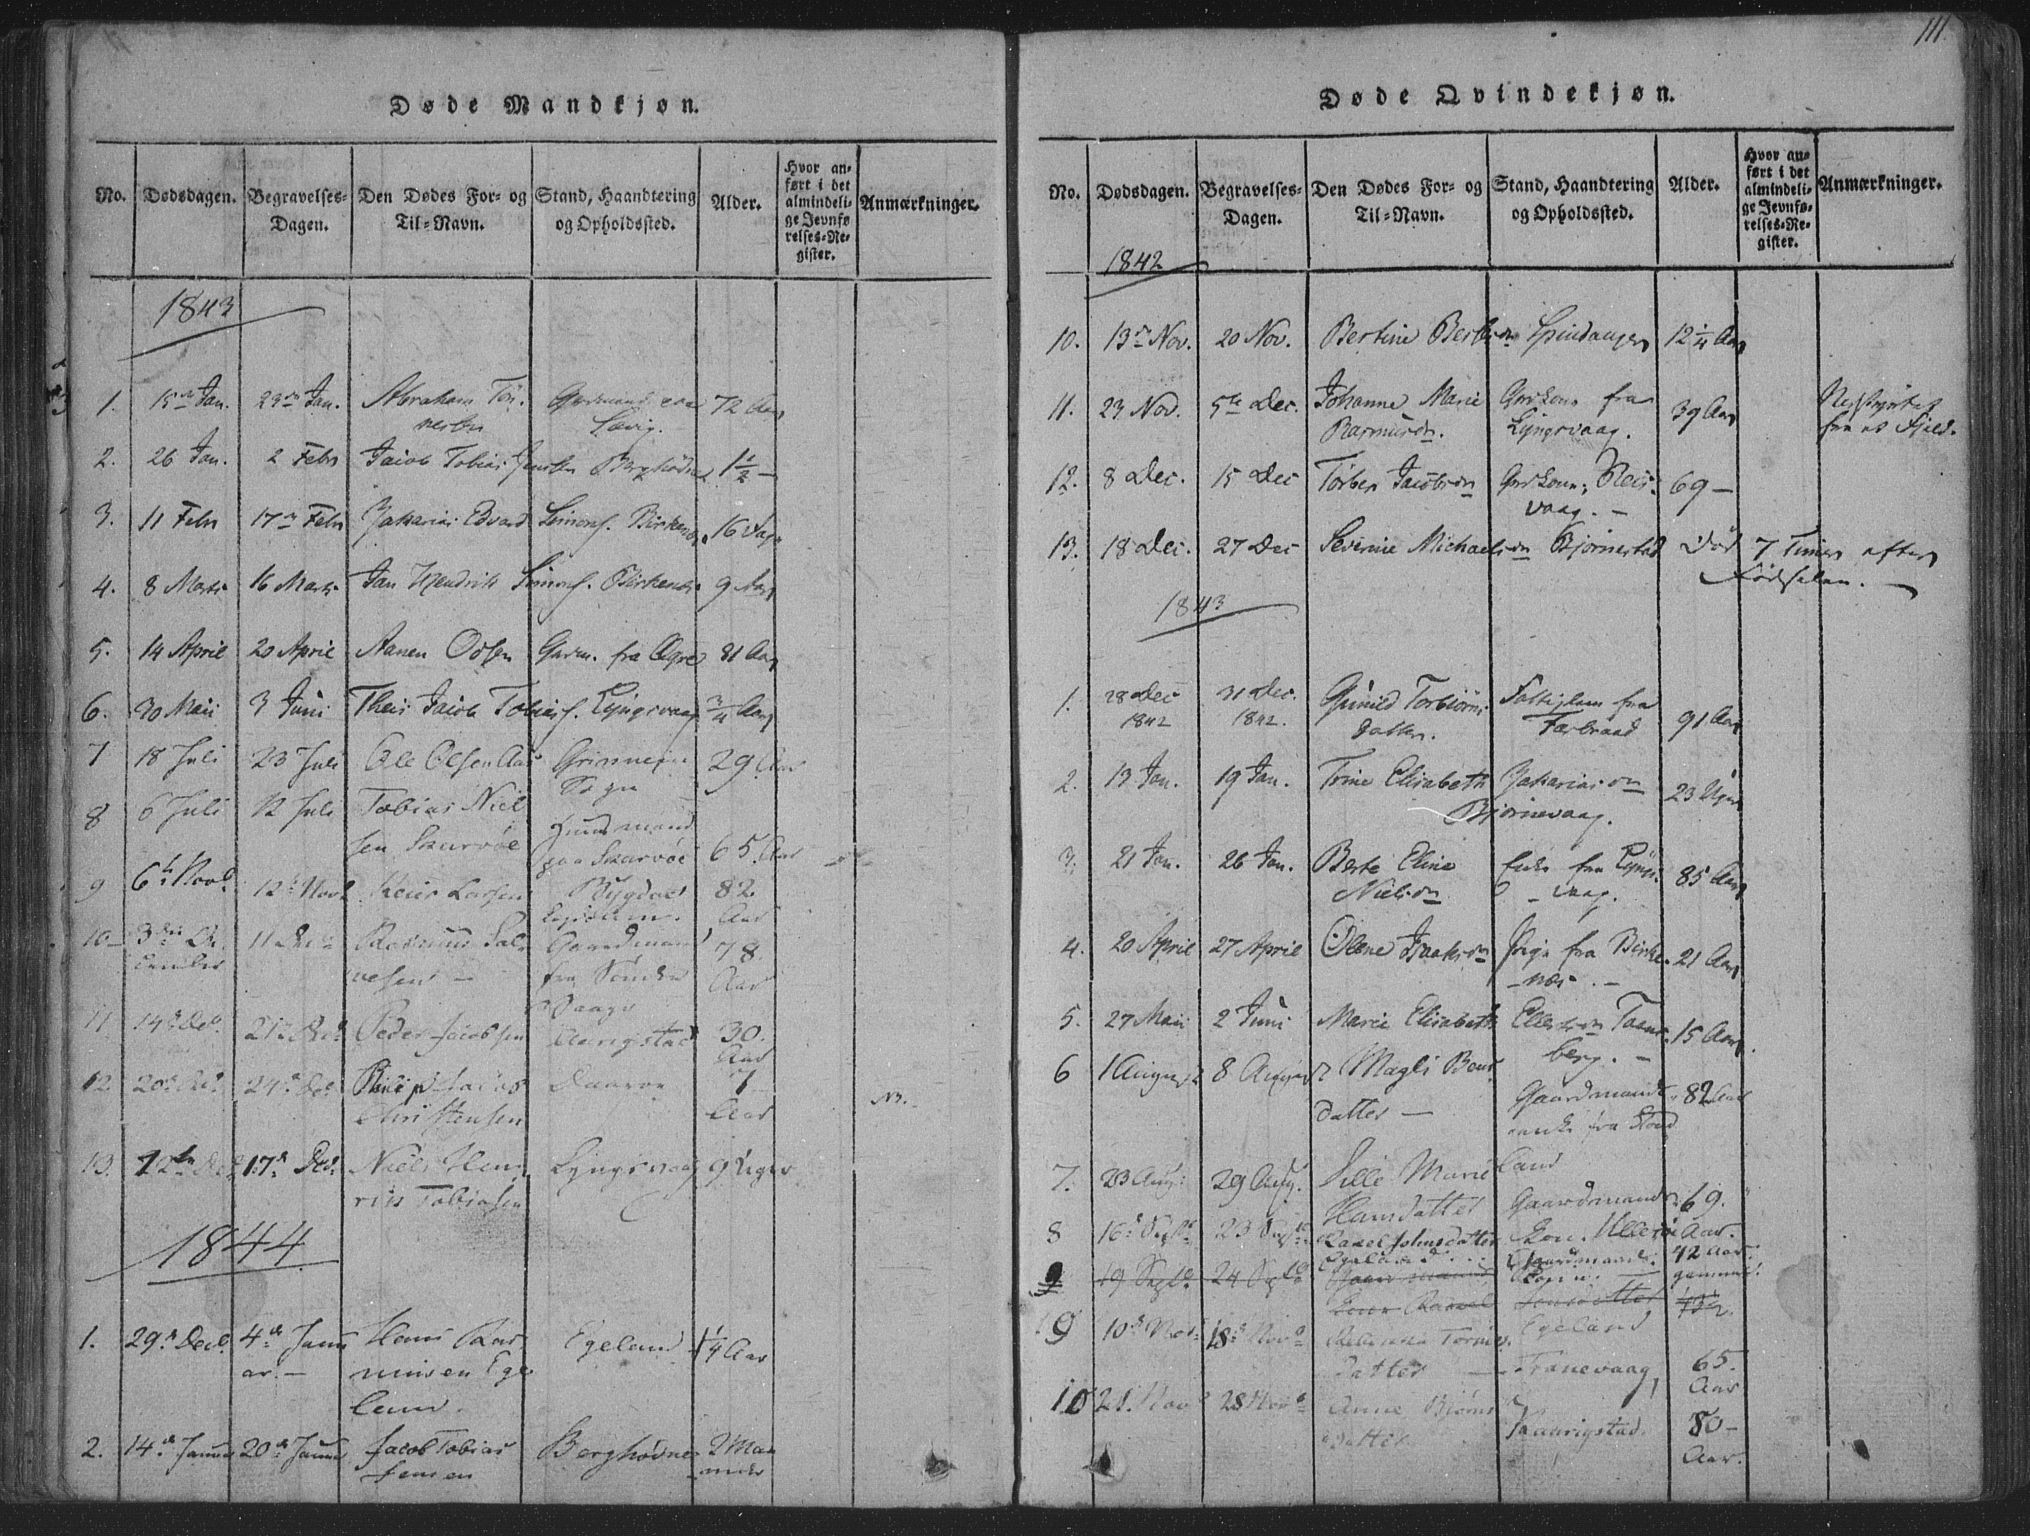 111
Døde Mandkjøn.
No. Dødsdagen. Begravelses-Dagen. Den Dødes For- og Til-Navn. Stand, Haandtering og Opholdssted. Alder. Hvor anført i det almindelige Jevnførelses-Register. Anmærkninger.
1843
1. 15de Jan. 23de Jan. Abraham Tønnesen 72 Aar
2. 26 Jan. 2 Febr Jacob Tobias Jensen Berghødne 1 1/2 —
3. 11 Febr 17de Febr Zakarias Edvard Simons. Birkenæs 16 Dage
4. 8 Marts 16 Marts Jan Hendrik Simons. Birkenæs 9 Aar
5. 14 April 20 April Aanen Odsen Gaardm. fra Agre 81 Aar
6. 30 Maii 3 Juni Theis Jacob Tobias. Lyngsvaag 3/4 Aar
7 18 Juli 23 Juli Ole Olsen Aas Grimnem Sogn 29 Aar
8 6 Juli 12 Juli Tobias Nielsen Skarvøe Huusmand paa Skarvøe 65 Aar
9 6te Novb. 12te Novb Reier Larsen Bygdas Legdsem. 82 Aar
10 3die December 11 Dec Rasmus Salvesen — Gaardmand fra Søndre Vaage 78 Aar
11 14de Dec. 21de Dec Peder Jacobsen Aarigstad 30 Aar
12 20de Dec. 24de Dec Christensen 7 Aar
N3.
13. 12te Dec 17de Dec. Niels Henrik Tobiasen Lyngsvaag 9 Uger
1844
1. 29de Decb. 4de Januar. — Hans Rasmusen Egeland. Egeland 1 1/4 Aar
2. 14de Januar 20de Januar Jacob Tobias Jensen Berghødne 2 Maaneder
Døde Qvindekjøn.
No. Dødsdagen. Begravelses-Dagen. Den Dødes For- og Til-Navn. Stand, Haandtering og Opholdssted. Alder. Hvor anført i det almindelige Jevnførelses-Register. Anmærkninger.
1842
10. 13de Nov. 20 Nov. Bertine Spindangen 12 1/4 Aar
11. 23 Nov. 5te Dec. Johanne Marie Rasmusdn. Grdkone fra Lyngsvaag. 39 Aar Nedstyrtet fra et Fjeld.
12. 8 Dec. 15 Dec Torber Jacobsdn Grdkone, Reisvaag. — 69 —
13. 18 Dec. 27 Dec Severine Michaelsdn Bjørnestad Død 7 Timer efter Fødselen. —
1843
1. 28 Dec 1842 31 Dec. 1842. Gunild Torbiørnsdatter. Fattiglem fra Farbraad 91 Aar
2. 13 Jan. 19 Jan. Trine Elisabeth Zakariasdn Bjørnevaag. 23 Uger
3. 21 Jan. 26 Jan. Berte Eline Nielsdn Enke fra Lyngsvaag. 85 Aar
4. 20 April 27 April Olene Isaaksdn Pige fra Birkenæs. — 21 Aar
5. 27 Maii 2 Juni Marie Elisabeth Ellefsdn Taaneberg. — 15 Aar
6 1 August 8 August Magli Bentdatter — Gaardmandsenke fra Stordland 82 Aar
7. 23 Aug. 29 Aug. Sille Marie Hansdatter Gaardmands Kone. 69. Aar.
8 16de Septb 23 Septb Rakel Johnsdatter Egeland Gaardmands Kone. 42 Aar gammel.
9 19 Septb. 24 Septb
9 10de Novb 18de Novb Tørresdatter — Tranevaag 65. Aar
10 21. Novb 28 Novb Anne Bjørnsdatter Haarigstad. 80 — Aar.
Egeland